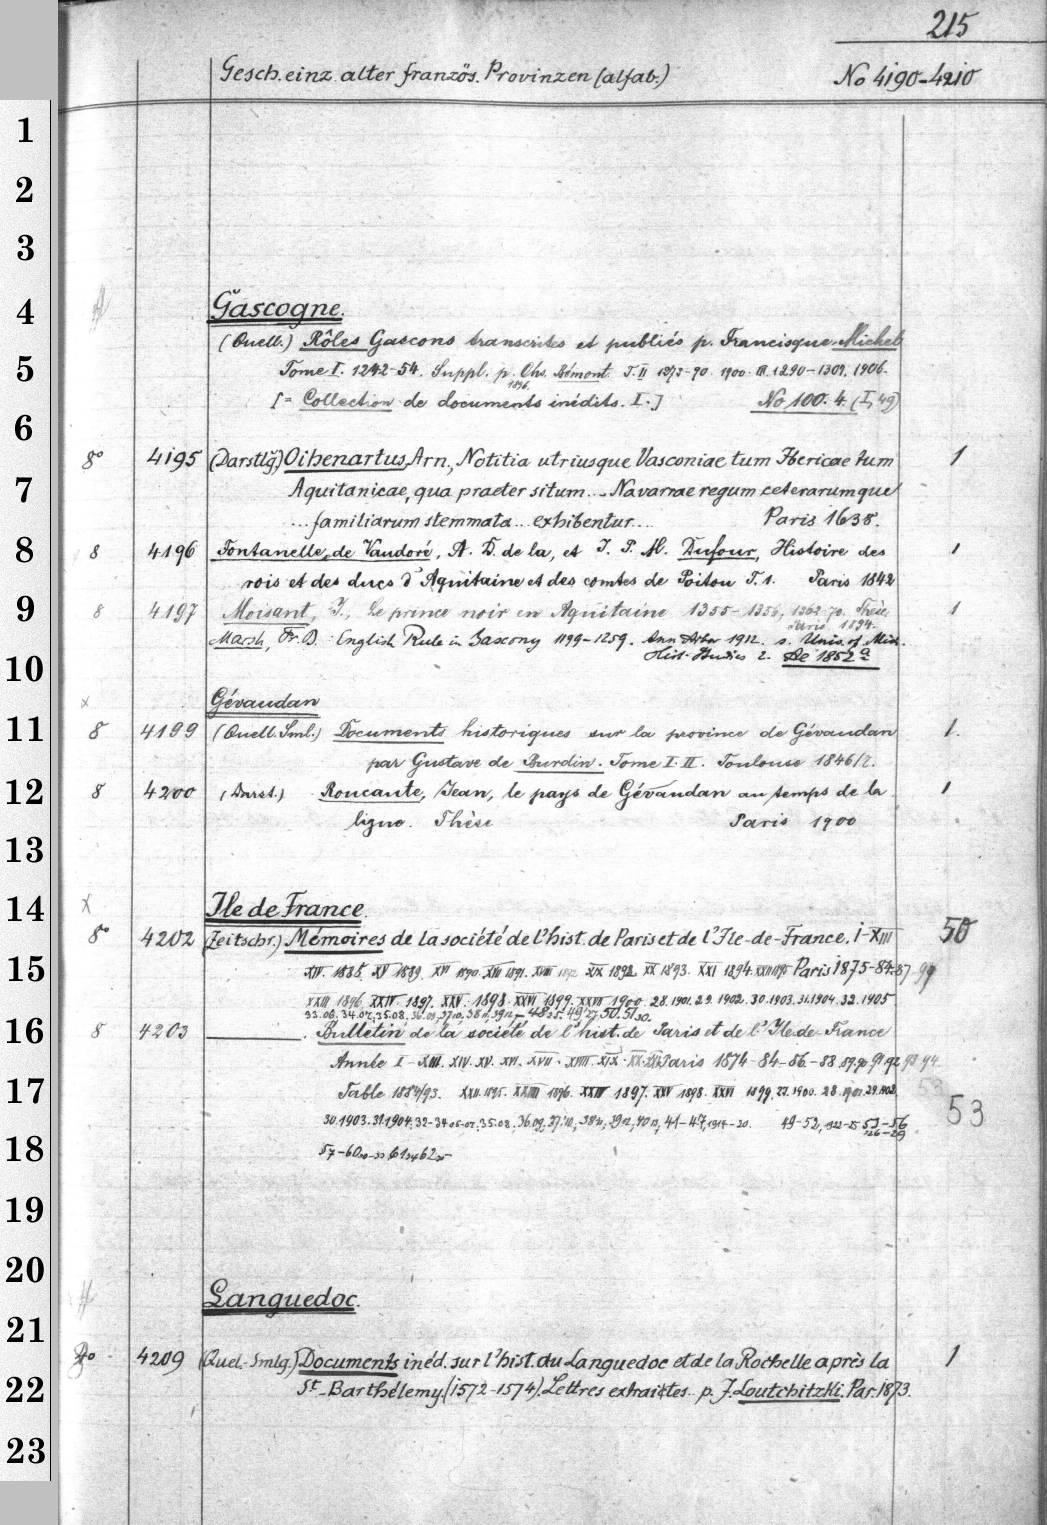 215
Gesch. einz. alter französ. Provinzen (alfab.) No 4190-4210
1
2
3
4 Gascogne.
(Quell.) Rôles Gascons transcrites et publiés p. Francisque-Michel
5 Tome I. 1242-54. Suppl. p. Chs. Bémont. T. II 1273-90. 1900. III. 1290-1309. 1906.
1896.
[= Collection de documents inédits. I.] No 100. 4. (I, 49)
6
8° 4195 (Darstllg.) Oihenartus, Arn., Notitia utriusque Vasconiae tum Ibericae tum 1
7 Aquitanicae, qua praeter situm... Navarrae regum ceterarumque
...familiarum stemmata... exhibentur... Paris 1638.
8 8 4196 Fontanelle de Vaudoré, A. D. de la, et J. P. M. Dufour, Histoire des 1
rois et des ducs d'Aquitaine et des comtes de Poitou T. 1. Paris 1842
9 8 4197 Moisant, J., Le prince noir en Aquitaine 1355-1356, 1362-70. Thèse 1
Paris 1894.
Marsh, Fr. B. English Rule in Gascony 1199-1259. Ann Arbor 1912. s. Univ. of Mich.
10 Hist. Studies 2. De 1852 a
x Gévaudan
11 8 4199 (Quell. Sml.) Documents historiques sur la province de Gévaudan 1.
par Gustave de Burdin. Tome I. II. Toulouse 1846/7.
12 8 4200 (Darst.) Roucaute, Jean, le pays de Gévaudan au temps de la 1
ligue. Thèse Paris 1900
13
14 x Ile de France.
8° 4202 (Zeitschr.) Mémoires de la société de l'hist. de Paris et de l'Ile-de-France. I-XIII 50
15 XIV. 1888. XV 1889. XVI 1890. XVII 1891. XVIII XIX 1892. XX 1893. XXI 1894. Paris 1875-84-87-99
XXIII 1896. XXIV. 1897. XXV. 1898. XXVI 1899. XXVII 1900. 28. 1901. 29. 1902. 30. 1903. 31. 1904. 32. 1905
33.06. 34.07. 35.08. 36.09. 37.10. 50.
16 8 4203 . Bulletin de la société de l'hist. de Paris et de l'Ile de France
Année I-XIII. XIV. XV. XVI. XVII. XVIII. XIX. XX. Paris 1874-84-86-88.89.90 91 92 93 94.
17 Table 1884/93. XXII 1895. XXIII 1896. XXIV 1897. XXV 1898. XXVI 1899. 27. 1900. 28. 1901. 29. 1902. 53
30. 1903. 31. 1904. 32-34 05-07. 35.08. 36.09. 37.10. 41-47, 1914-20. 49-52, 1922-25 53-56 53
26-29
18 57-60
19
20
Languedoc.
21
4209 (Quel.-Smlg.) Documents inéd. sur l'hist. du Languedoc et de la Rochelle après la 1
22 St-Barthélemy (1572-1574). Lettres extraites p. J. Loutchitzki. Par. 1873.
23